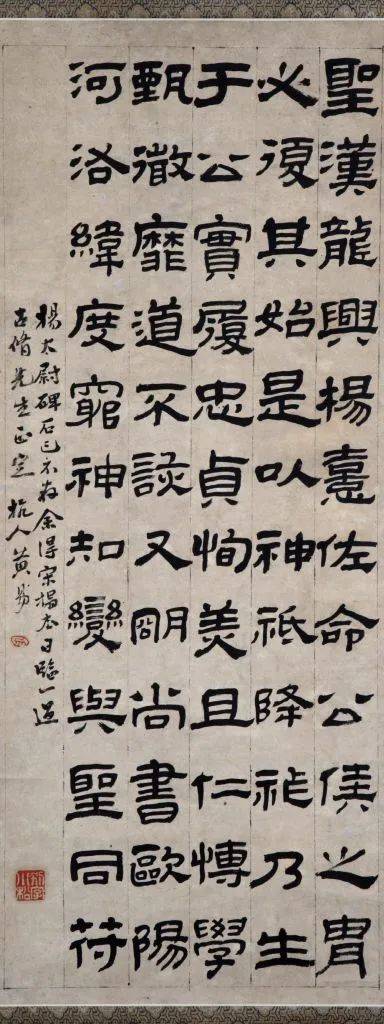 聖漢龍興楊憙佐命公侯之胄
必復其始是以神祗降祉乃生
于公實履忠貞恂美且仁博學
甄徹靡道不該又明尚書歐陽
河洛緯度窮神知變與聖同符
楊太尉碑石已不存余得宋搨本日臨一過
古脩先生正定 杭人黃易